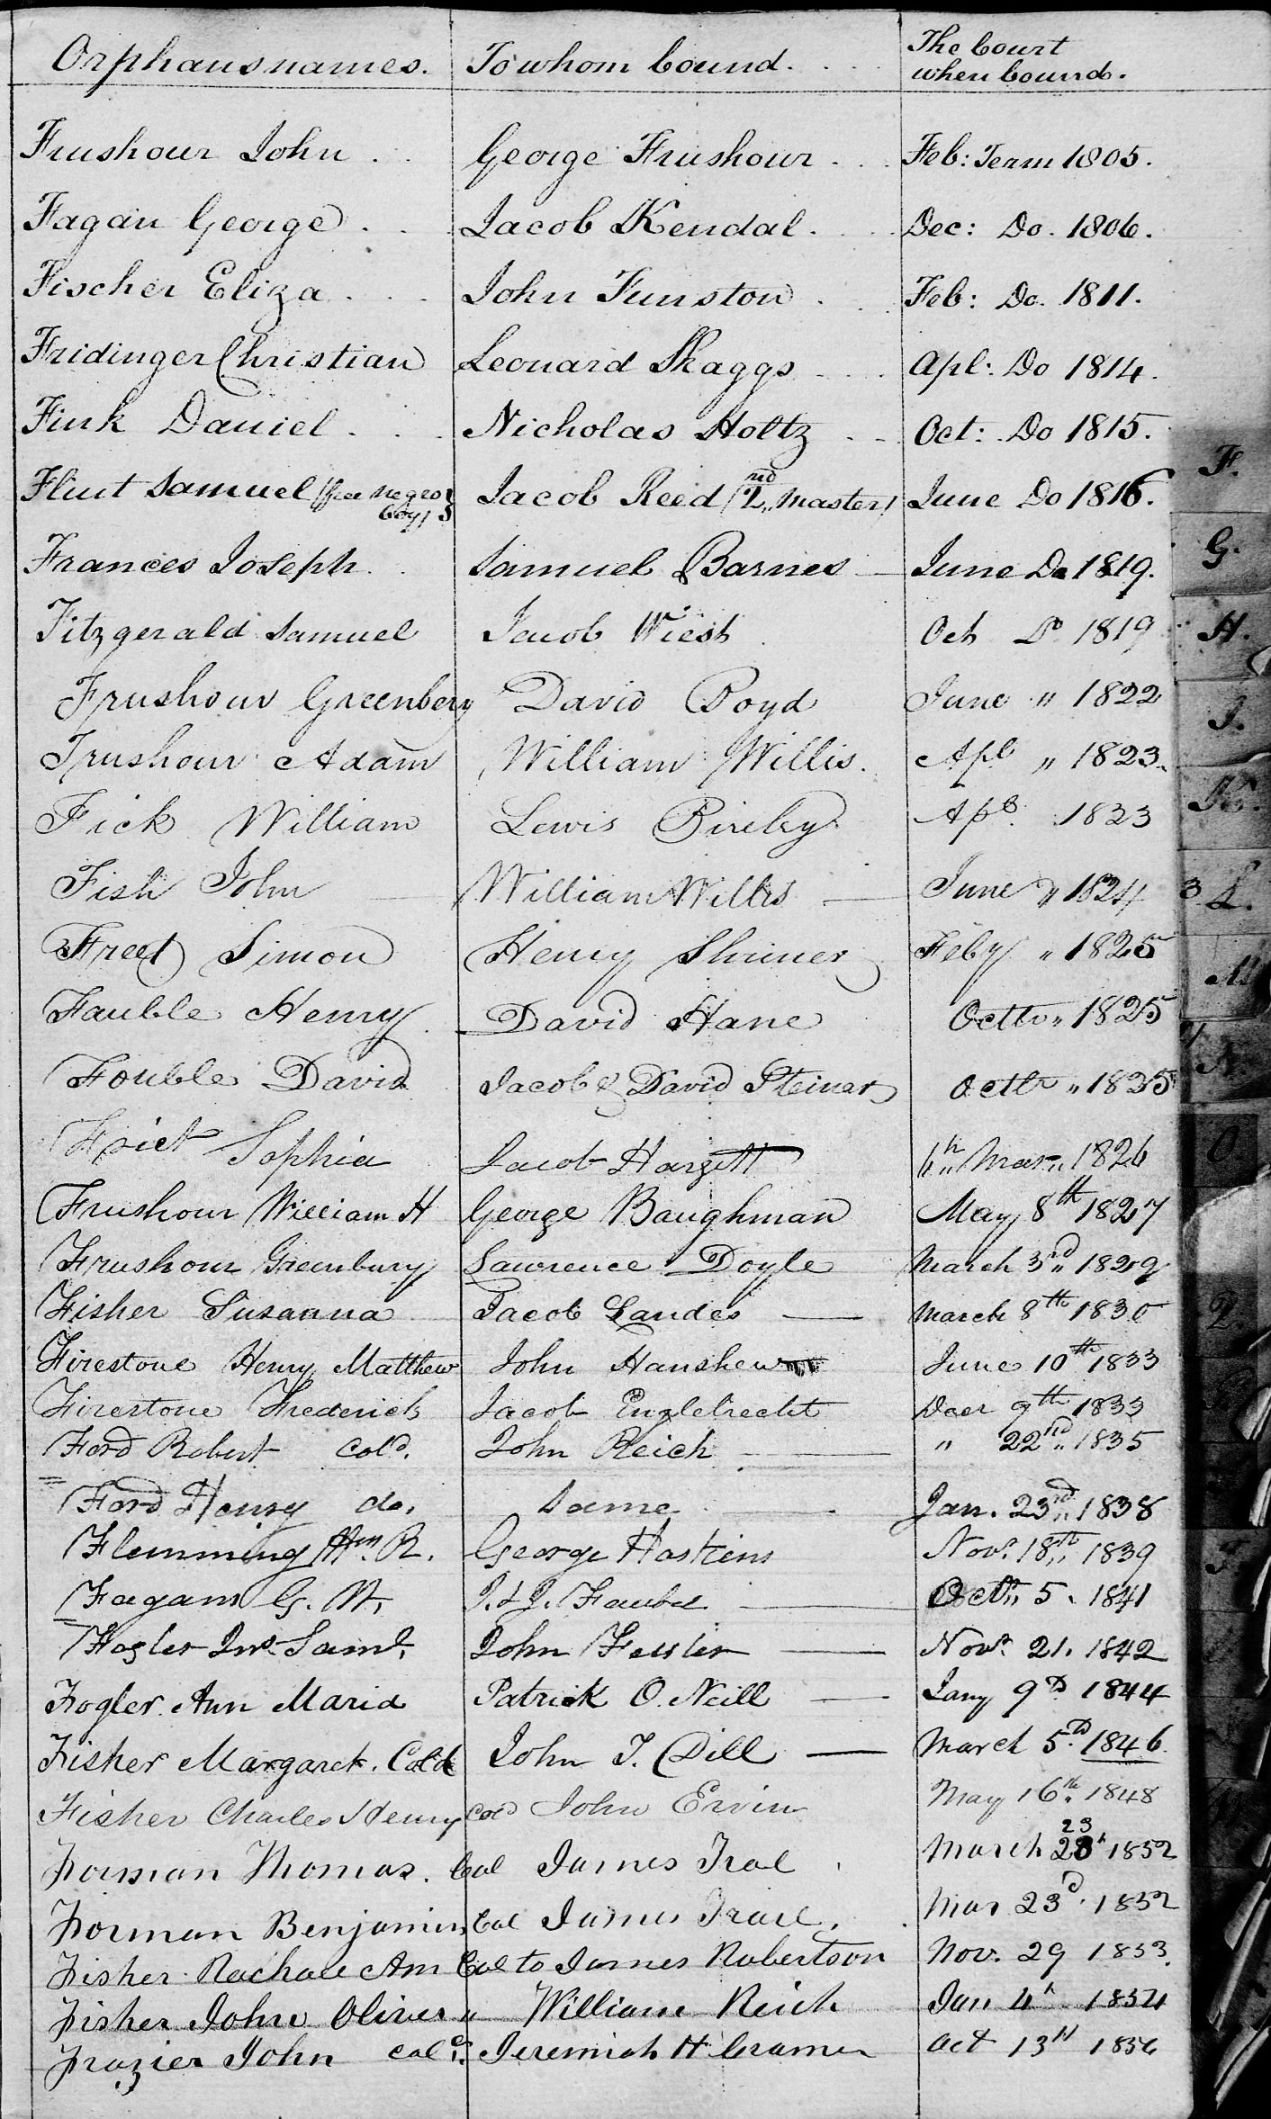 Orphans names. To whom bound. . . . The Court when bound.
Frushour John . . George Frushour . . . Feb: Term 1805.
Fagan George . . . Jacob Kendal . . . Dec: Do. 1806.
Fischer Eliza . . . John Funston . . . Feb: Do. 1811.
Fridinger Christian Leonard Skaggs . . . Apl: Do 1814.
Fink Daniel . . . Nicholas Holtz . . Oct: Do 1815.
Flint Samuel (free negro boy) Jacob Reed (2nd Master) June Do 1816.
Frances Joseph . . Samuel Barnes — June Do 1819.
Fitzgerald Samuel Jacob Wiest Oct Do 1819
Frushour Greenbery David Boyd June " 1822
Frushour Adam William Willis. Apl " 1823
Fick William Lewis Birely Apl. 1823
Fish John William Willis — June " 1824
Freet Simon Henry Shriner Feby " 1825
Fauble Henry David Hane Octbr " 1825
Fouble David Jacob & David Steiner Octbr " 1825
Sophia Jacob Hargett 6th Mar. 1826
Frushour William H George Baughman May 8th 1827
Frushour Greenbury Lawrence Doyle March 3rd 1829
Fisher Susanna Jacob Landes — March 8th 1830
Firestone Henry Matthew John Hanshew June 10th 1833
Firestone Frederick Jacob Englebrecht Decr 9th 1833
Ford Robert Cold. John Reich — " 22nd 1835
Ford Henry do. Same — Jan. 23rd 1838
Flemming Wm. R. George Hoskins Novr. 18th 1839
Fagans G. W. J. & J. Faubel — Octr. 5. 1841
Fogler Jno. Saml. John Fessler — Novr. 21. 1842
Fogler Ann Maria Patrick O. Neill — Jany 9th 1844
Fisher Margaret. Cold John T. Dill — March 5th 1846.
Fisher Charles Henry Cold John Ervin May 16th. 1848
Forman Thomas. Col James Trail . March 23 1852
Forman Benjamin Col James Trail. Mar 23d. 1852
Fisher Rachael Ann Col to James Robertson Nov. 29 1853.
Fisher John Oliver " William Reich Jan 4th 1854
Frazier John cold. Jeremiah H Cramer Oct 13th 1856
F.
G.
H.
I.
K.
L.
M
N.
O.